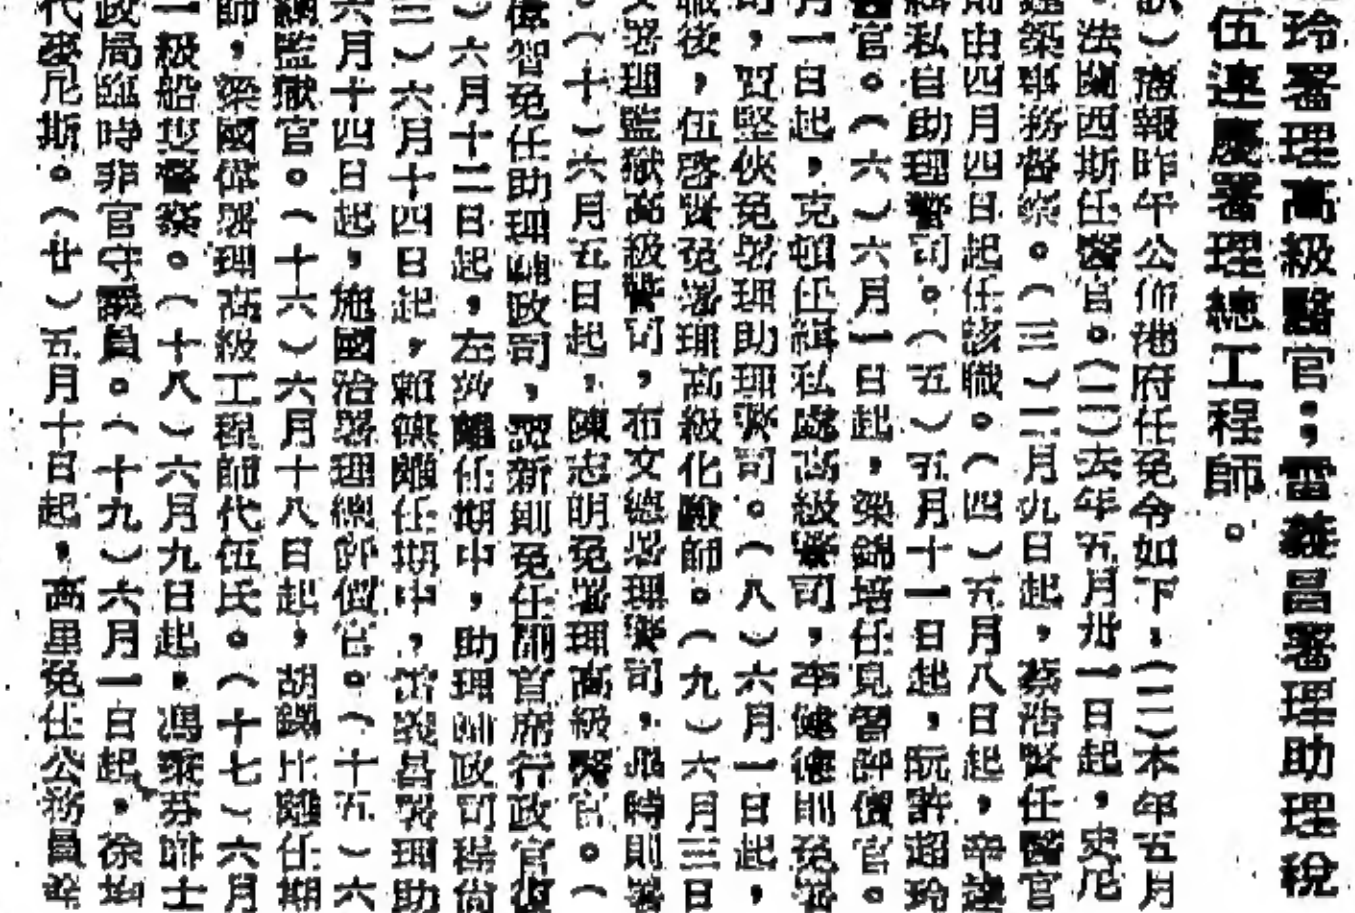 玲署理高級醫官；雷義昌署理助理稅
伍連慶署理總工程師。
）憲報昨午公佈港府任免令如下，（一）本年五月
。法蘭西斯任醫官。（二）去年五月卅一日起，史尼
建築事務督察。（三）二月九日起，蔡浩賢任醫官
前由四月四日起任該職。（四）五月八日起，辛
緝私自助理警司。（五）五月十一日起，阮許超玲
醫官。（六）六月一日起，梁錦培任見習評價官。
月一日起，克頓任緝私處高級警司，李健德則免署
司，賀堅俠免署理助理警司。（八）六月一日起，
職後，伍啓賢免署理高級化驗師。（九）六月三日
文署理監獄高級警司，布文德署理警司，馬時則署
。（十）六月五日起，陳志明免署理高級醫官。（
偉智免任助理關政司，賈新則免任關首席行政官復
）六月十二日起，左敦離任期中，助理關政司楊尙
三）六月十四日起，賴德離任期中，雷義昌署理助
六月十四日起，施國治署理總評價官。（十五）六
總監獄官。（十六）六月十八日起，胡錦比離任期
師，梁國偉署理高級工程師代伍氏。（十七）六月
一級船隻督察。（十八）六月九日起，馮秉芬爵士
政局臨時非官守議員。（十九）六月一日起，徐
代麥尼斯。（廿）五月十日起，高里免任公務員